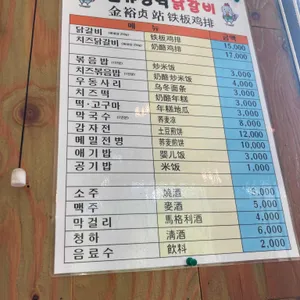 닭갈비
金裕贞站 铁板鸡排
메 뉴 금액
닭갈비 铁板鸡排 15,000
치즈닭갈비 奶酪鸡排 17,000
볶음밥 炒米饭 3,000
치즈볶음밥 奶酪炒米饭
우동사리 乌冬面条
치즈떡 奶酪年糕
떡·고구마 年糕地瓜 3,000
막국수 荞麦凉 8,000
감자전 土豆煎饼 12,000
메밀전병 荞麦煎饼 10,000
애기밥 婴儿饭 3,000
공기밥 米饭 1,000
소주 燒酒 5,000
맥주 麥酒 5,000
막걸리 馬格利酒 4,000
청하 淸酒 6,000
음료수 飮料 2,000